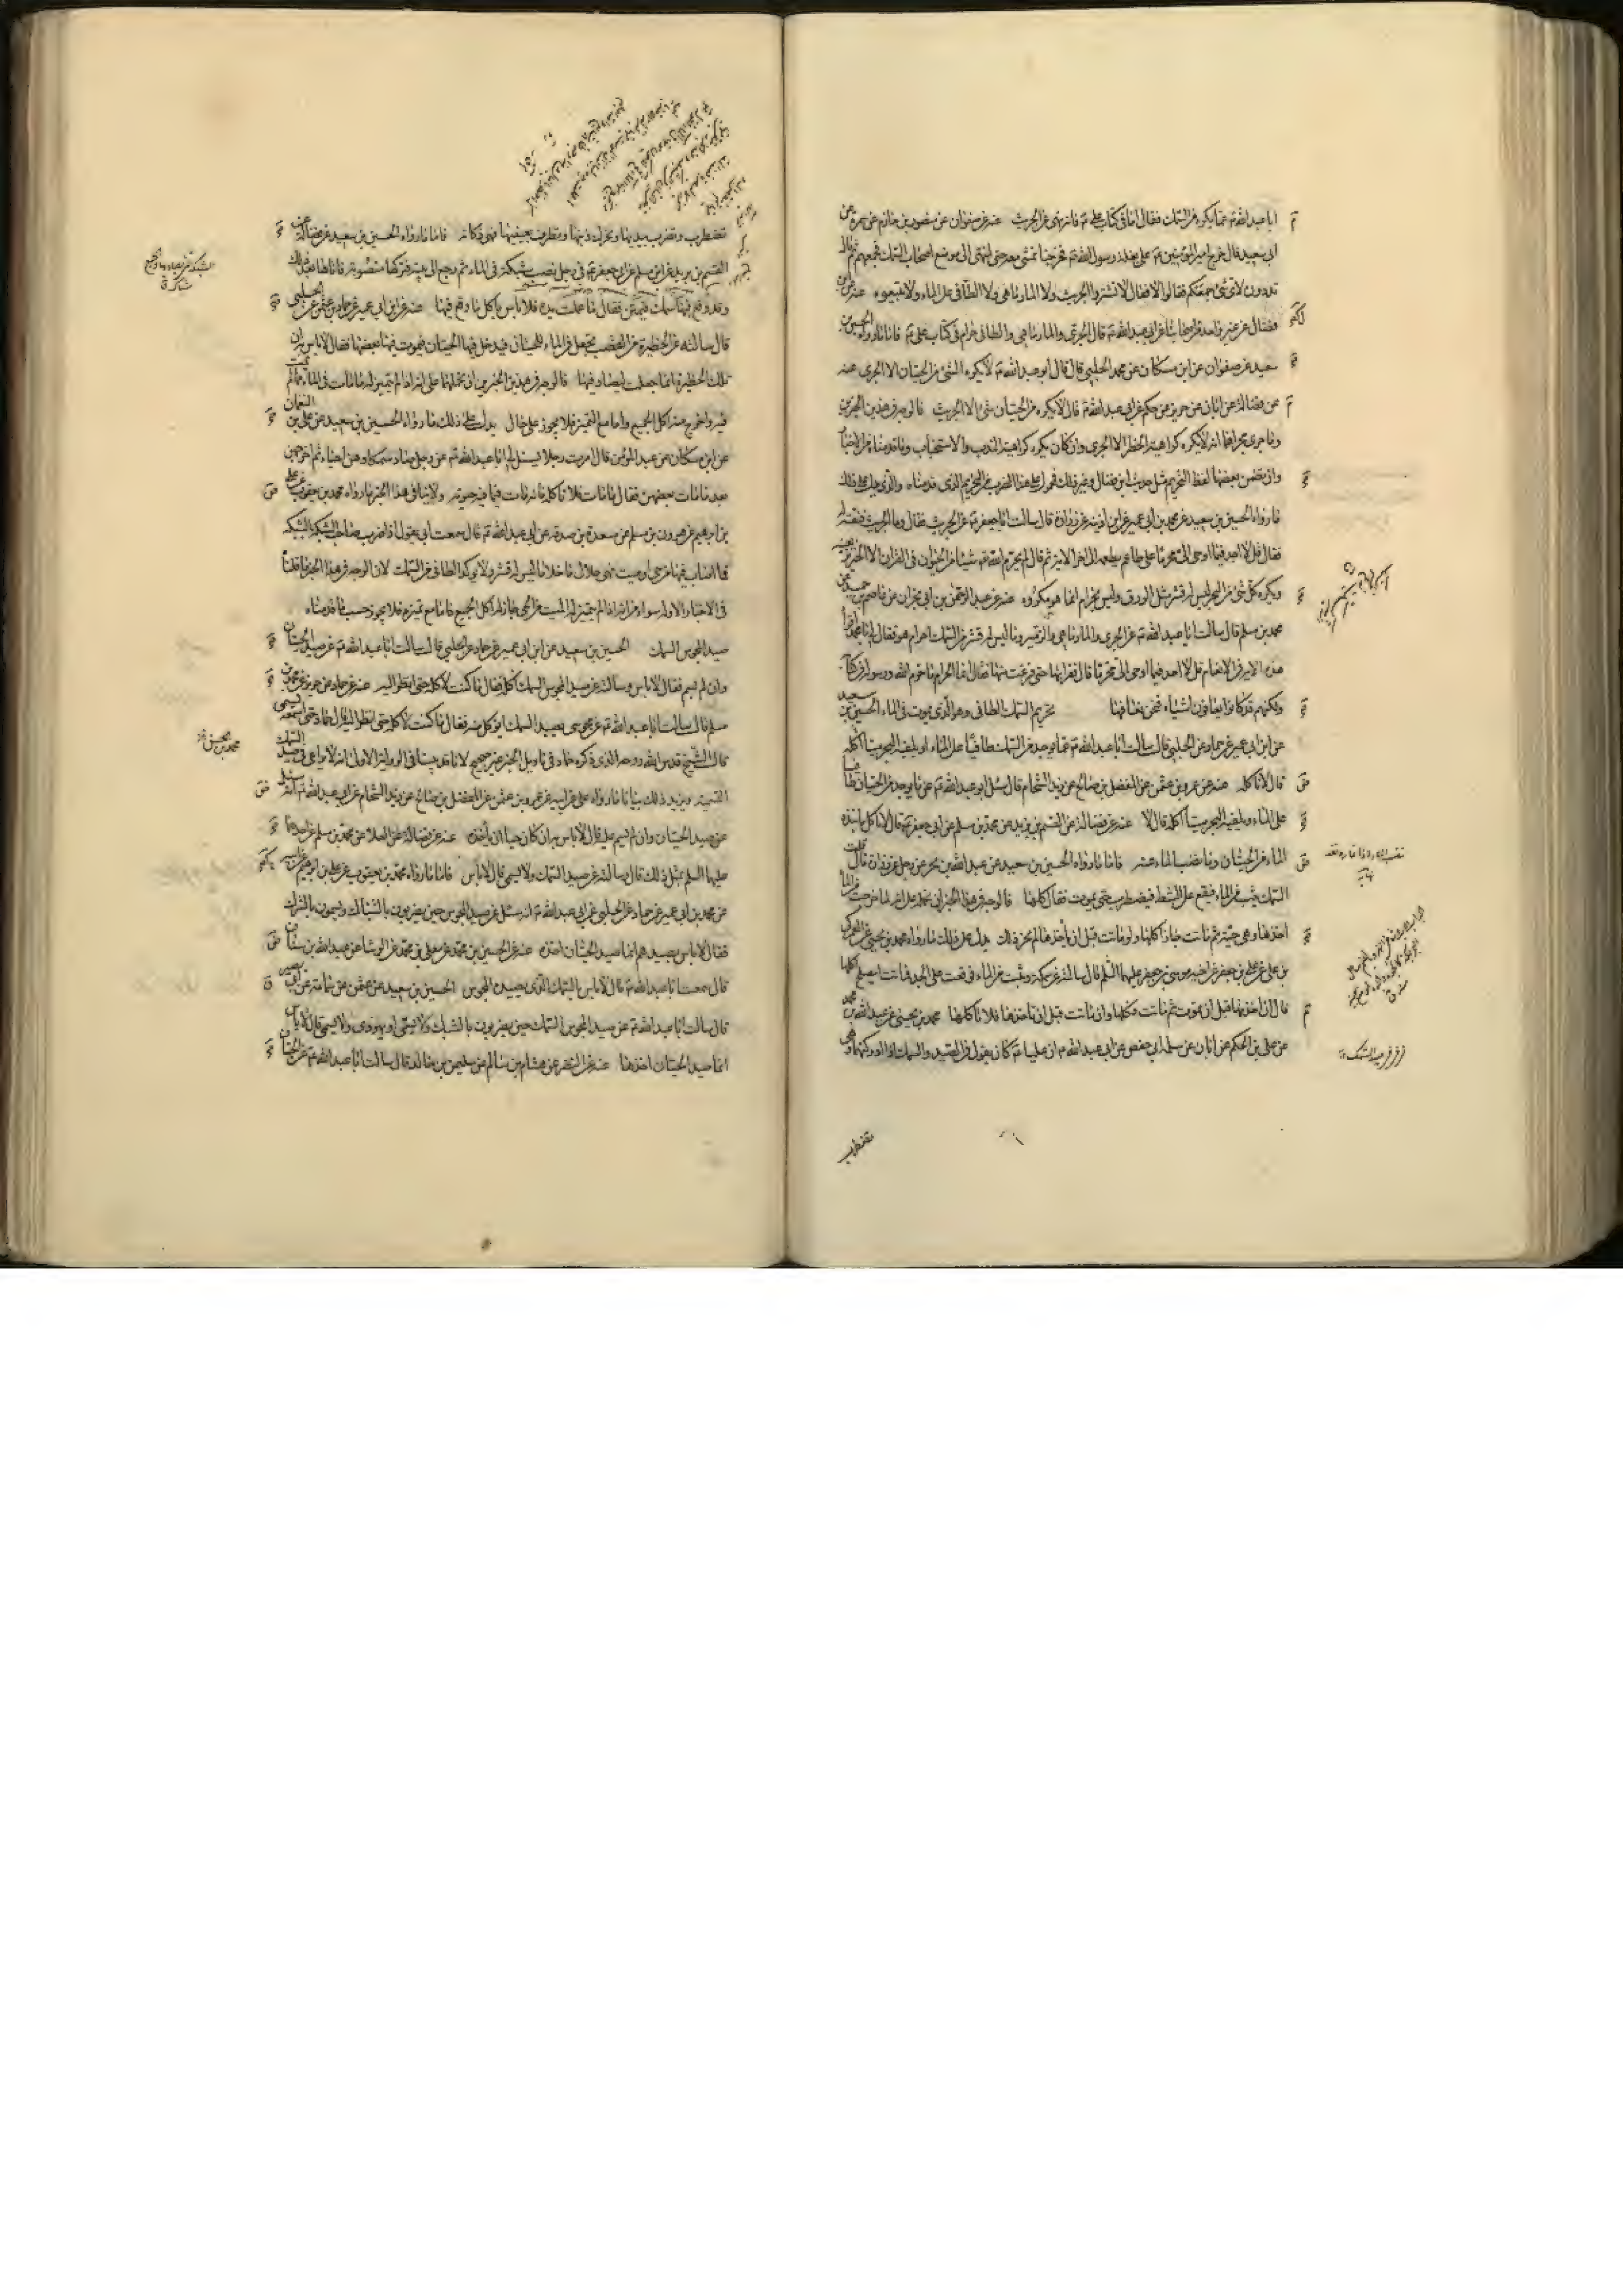 ابا عبد الله ع عما يكره من السمك فقال اما في كتاب علي ع فانه نهى عن الجريث عنه عن صفوان عن منصور بن حازم عن سمرة عن
ابي سعيد قال خرج امير المؤمنين ع على بغلة رسول الله ص فخرجنا معه نمشي حتى انتهى الى موضع اصحاب السمك فجمعهم ثم قال
تدرون لاي شئ جمعتكم فقالوا لا فقال لا تشتروا الجريث ولا المارماهي ولا الطافي على الماء ولا تبيعوه عنه عن ابن
فضال عن غير واحد من اصحابنا عن ابي عبد الله ع قال الجري والمارماهي والطافي حرام في كتاب علي ع فاما ما رواه الحسين بن
سعيد عن صفوان عن ابن مسكان عن محمد الحلبي قال قال ابو عبد الله ع لا يكره شئ من الحيتان الا الجري عنه
عن فضالة عن ابان عن حريز عن حكم عن ابي عبد الله ع قال لا يكره من الحيتان شئ الا الجريث فالوجه في هذين الخبرين
وما جرى مجراهما انه لا يكره كراهية الحظر الا الجري وان كان يكره كراهية الندب والاستحباب وما قدمناه من الاخبار
وان تضمن بعضها لفظ التحريم مثل حديث ابن فضال وغير ذلك فمحمول على هذا الضرب من التحريم الذي قدمناه والذي يدل على ذلك
ما رواه الحسين بن سعيد عن محمد بن ابي عمير عن ابن اذينة عن زرارة قال سالت ابا جعفر ع عن الجريث فقال وما الجريث فنعته له
فقال قل لا اجد فيما اوحي الي محرما على طاعم يطعمه الى اخر الاية ثم قال لم يحرم الله تعالى شيئا من الحيوان في القران الا الخنزير بعينه
ويكره كل شئ من البحر ليس له قشر مثل الورق وليس بحرام انما هو مكروه عنه عن عبد الرحمن بن ابي نجران عن عاصم بن حميد عن
محمد بن مسلم قال سالت ابا عبد الله ع عن الجري والمارماهي والزمير وما ليس له قشر من السمك احرام هو فقال لي يا محمد اقرأ
هذه الاية في الانعام قل لا اجد فيما اوحي الي محرما قال فقراتها حتى فرغت منها فقال انما الحرام ما حرم الله ورسوله في كتابه
ولكنهم قد كانوا يعافون اشياء فنحن نعافها تحريم السمك الطافي وهو الذي يموت في الماء الحسين بن سعيد
عن ابن ابي عمير عن حماد عن الحلبي قال سالت ابا عبد الله ع عما يوجد من السمك طافيا على الماء او يلقيه البحر ميتا اكله
قال لا تاكله عنه عن عمرو بن عثمن عن المفضل بن صالح عن زيد الشحام قال سئل ابو عبد الله ع عن ما يوجد من الحيتان طافيا
على الماء ويلقيه البحر ميتا اكله قال لا عنه عن فضالة عن القسم بن بريد عن محمد بن مسلم عن ابي جعفر ع قال لا تاكل ما نبذه
الماء من الحيتان وما نضب الماء عنه فاما ما رواه الحسين بن سعيد عن عبد الله بن بحر عن رجل عن زرارة قال قلت
السمك يثب من الماء فيقع على الشط فيضطرب حتى يموت فقال كلها فالوجه في هذا الخبر ان نحمله على انه لما خرجت من الماء
اخذها وهي حية ثم ماتت جاز اكلها ولو ماتت قبل ان ياخذها لم يجز ذلك يدل على ذلك ما رواه محمد بن يحيى عن العمركي
بن علي عن علي بن جعفر عن اخيه موسى بن جعفر عليهما السلم قال سالته عن سمكة وثبت من الماء فوقعت على الجد فماتت ايصلح اكلها
قال ان اخذتها قبل ان تموت ثم ماتت فكلها وان ماتت قبل ان تاخذها فلا تاكلها محمد بن يحيى عن عبد الله بن محمد
عن علي بن الحكم عن ابان عن سلمة ابي حفص عن ابي عبد الله ع ان عليا ع كان يقول في الصيد والسمك اذا ادركتها وهي
تضطرب
تضطرب وتضرب بيديها وتحرك ذنبها وتطرف بعينيها فهي ذكاته فاما ما رواه الحسين بن سعيد عن فضالة عن
القسم بن بريد عن ابن مسلم عن ابي جعفر ع في رجل نصب شبكة في الماء ثم رجع الى بيته وتركها منصوبة فاتاها بعد ذلك
وقد وقع فيها سمك فيمتن فقال ما عملت يده فلا باس باكل ما وقع فيها عنه عن ابن ابي عمير عن حماد بن عثمن عن الحلبي
قال سالته عن الحظيرة من القصب تجعل في الماء للحيتان فيدخل فيها الحيتان فيموت فيها بعضها فقال لا باس ان
تلك الحظيرة انما جعلت ليصاد فيها فالوجه في هذين الخبرين ان نحملهما على انه اذا لم يتميز له ما مات في الماء مما لم يمت
فيه واخرج منه اكل الجميع واما مع التميز فلا يجوز على حال يدل على ذلك ما رواه الحسين بن سعيد عن علي بن النعمان
عن ابن مسكان عن عبد المؤمن قال امرت رجلا يسئل لي ابا عبد الله ع عن رجل صاد سمكا وهن احياء ثم اخرجهن
بعد ما مات بعضهن فقال ما مات فلا تاكله فانه مات فيما فيه حيوته ولا ينافي هذا الخبر ما رواه محمد بن يعقوب عن علي
بن ابراهيم عن هرون بن مسلم عن مسعدة بن صدقة عن ابي عبد الله ع قال سمعت ابي يقول اذا ضرب صاحب الشبكة بالشبكة
فما اصاب فيها من حي او ميت فهو حلال ما خلا ما ليس له قشر ولا يوكل الطافي من السمك لان الوجه في هذا الخبر ما قلناه
في الاخبار الاولة سواء من انه اذا لم يتميز له الميت من الحي جاز له اكل الجميع فاما مع تميزه فلا يجوز حسب ما قدمناه
صيد المجوس السمك الحسين بن سعيد عن ابن ابي عمير عن حماد عن الحلبي قال سالت ابا عبد الله ع عن صيد الحيتان
وان لم يسم فقال لا باس وسالته عن صيد المجوس السمك اكله فقال ما كنت لاكله حتى انظر اليه عنه عن حماد عن حريز عن محمد بن
مسلم قال سالت ابا عبد الله ع عن مجوسي يصيد السمك ايوكل منه فقال ما كنت لاكله حتى انظر اليه قال حماد حتى اسمعه يسمي
قال الشيخ قدس الله روحه الذي ذكره حماد في تاويل الخبر غير صحيح لانا قد بينا في الرواية الاولى انه لا يراعى في صيد السمك
التسمية ويزيد ذلك بيانا ما رواه علي عن ابيه عن عمرو بن عثمن عن المفضل بن صالح عن زيد الشحام عن ابي عبد الله ع انه سئل
عن صيد الحيتان وان لم يسم عليه قال لا باس به ان كان حيا ان ياخذه عنه عن فضالة عن العلا عن محمد بن مسلم عن احدهما
عليهما السلم بمثل ذلك قال سالته عن صيد السمك ولا يسمي قال لا باس فاما ما رواه محمد بن يعقوب عن علي بن ابراهيم عن ابيه
عن محمد بن ابي عمير عن حماد عن الحلبي عن ابي عبد الله ع انه سئل عن صيد المجوس حين يضربون بالشباك ويسمون بالشرك
فقال لا باس بصيدهم انما صيد الحيتان اخذه عنه عن الحسين بن محمد عن معلى بن محمد عن الوشا عن عبد الله بن سنان
قال سمعت ابا عبد الله ع قال لا باس بالسمك الذي يصيده المجوس الحسين بن سعيد عن عثمن عن سماعة عن ابي بصير
قال سالت ابا عبد الله ع عن صيد المجوس السمك حين يضربون بالشبك ولا يسمي او يهودي ولا يسمي قال لا باس
انما صيد الحيتان اخذها عنه عن النضر عن هشام بن سالم عن سليمن بن خالد قال سالت ابا عبد الله ع عن الحيتان